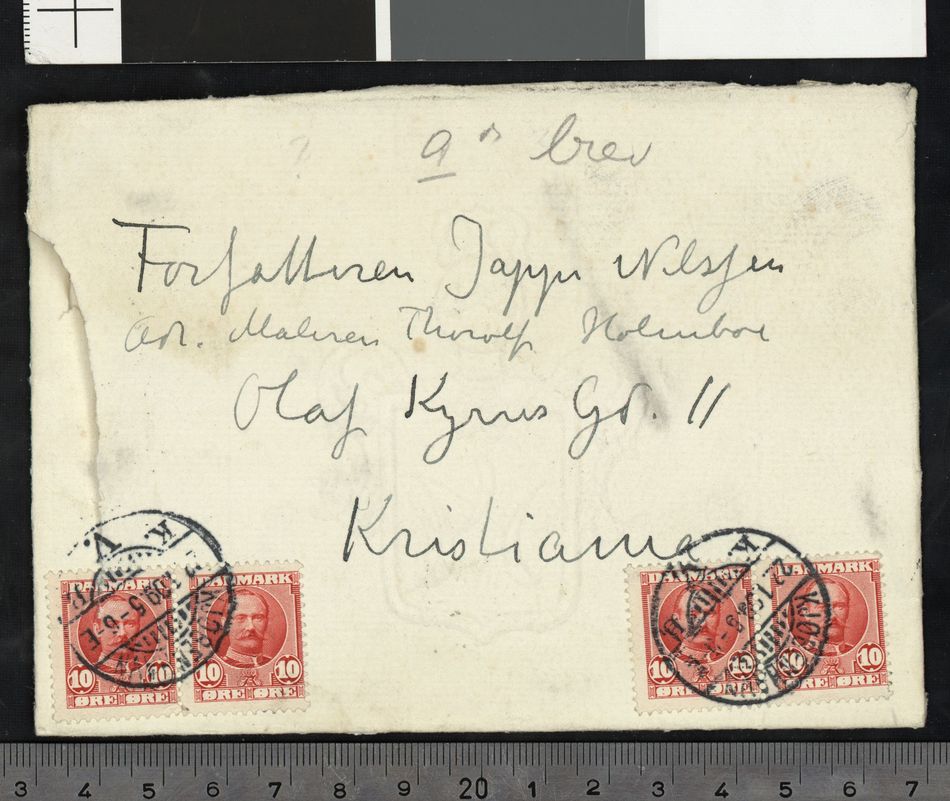 9de brev
Forfatteren Jappe Nilssen
Adr. Maleren Thorolf Holmboe
Olaf Kyrres Gd. 11
Kristiania
K. V.
DANMARK DANMARK DANMARK DANMARK
10 10 10 10 10 10
ØRE ØRE ØRE ØRE ØRE ØRE ØRE ØRE
3 4 5 6 7 8 9 20 1 2 3 4 5 6 7